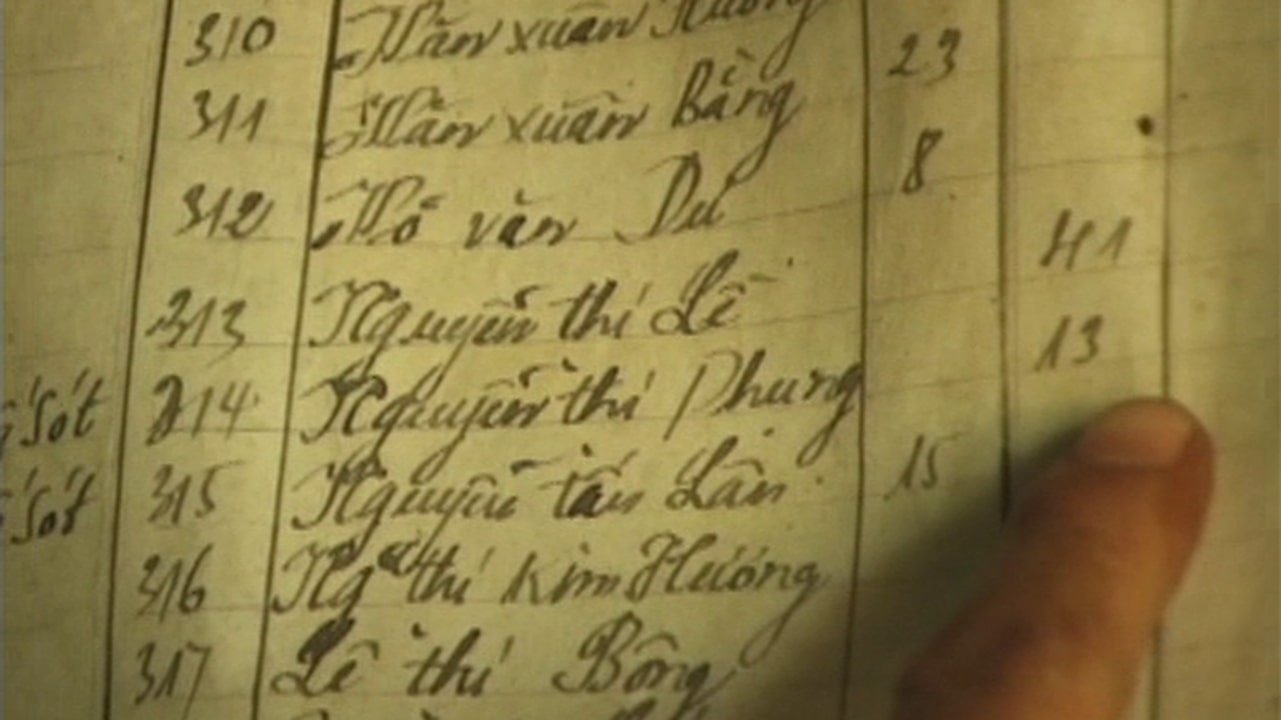 310 Văn xuân Hương
311 Văn xuân Bằng 23
312 Võ văn Dư 8
313 Nguyễn thị Lề 41
sót 314 Nguyễn thị Phung 13
sót 315 Nguyễn tấn Lân 15
316 Ng thị Kim Hường
317 Lê thị Bông